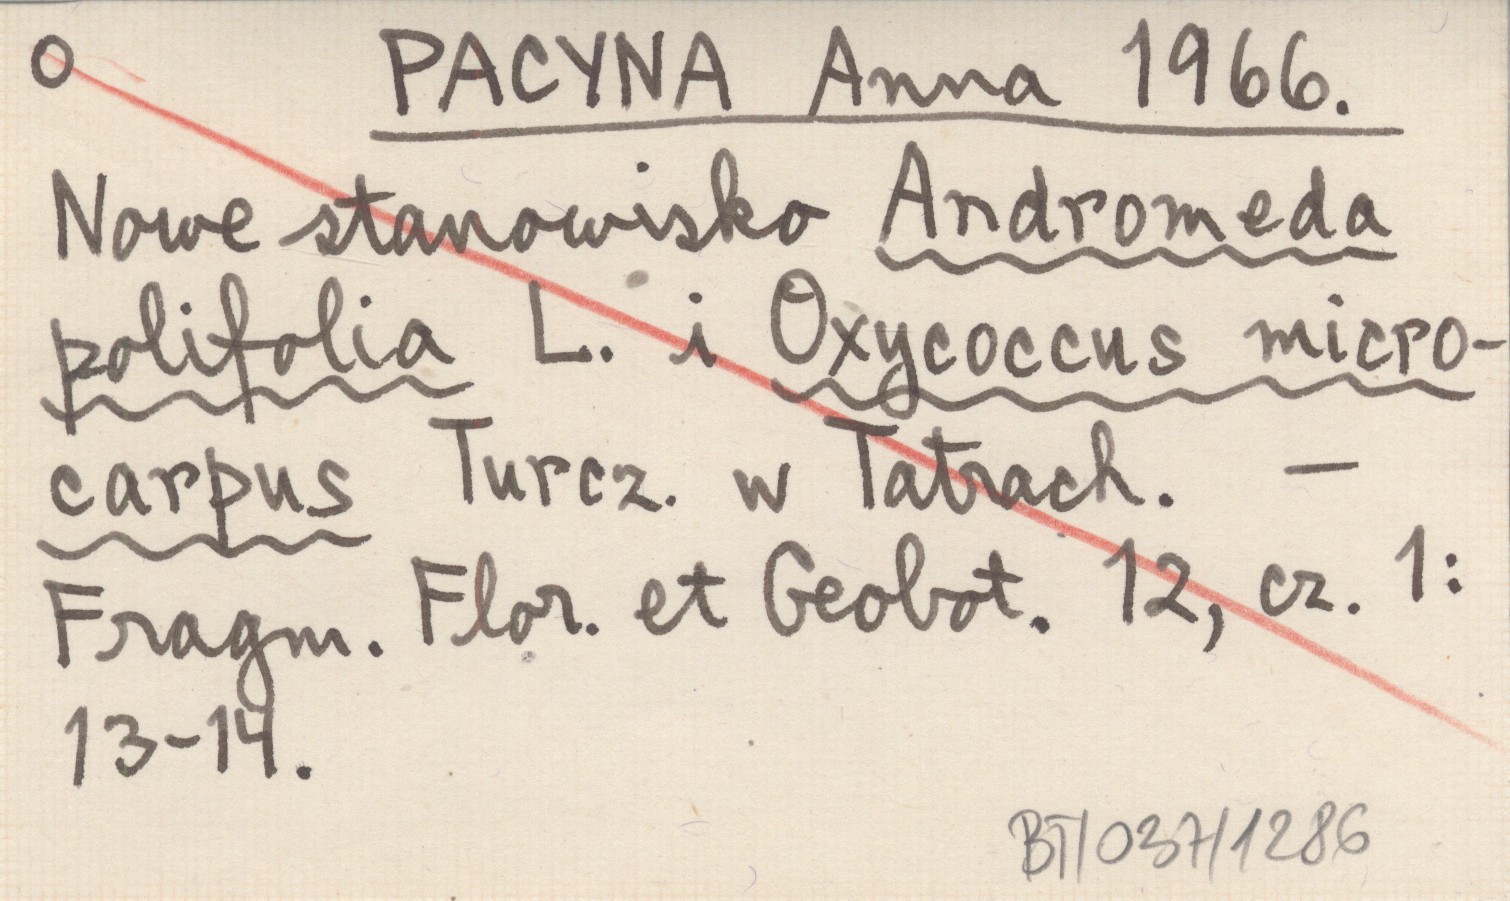 O PACYNA Anna 1966.
Nowe stanowisko Andromeda
polifolia L. i Oxycoccus micro-
carpus Turcz. w Tatrach. —
Fragm. Flor. et Geobot. 12, cz. 1:
13-14.
BT/037/1286